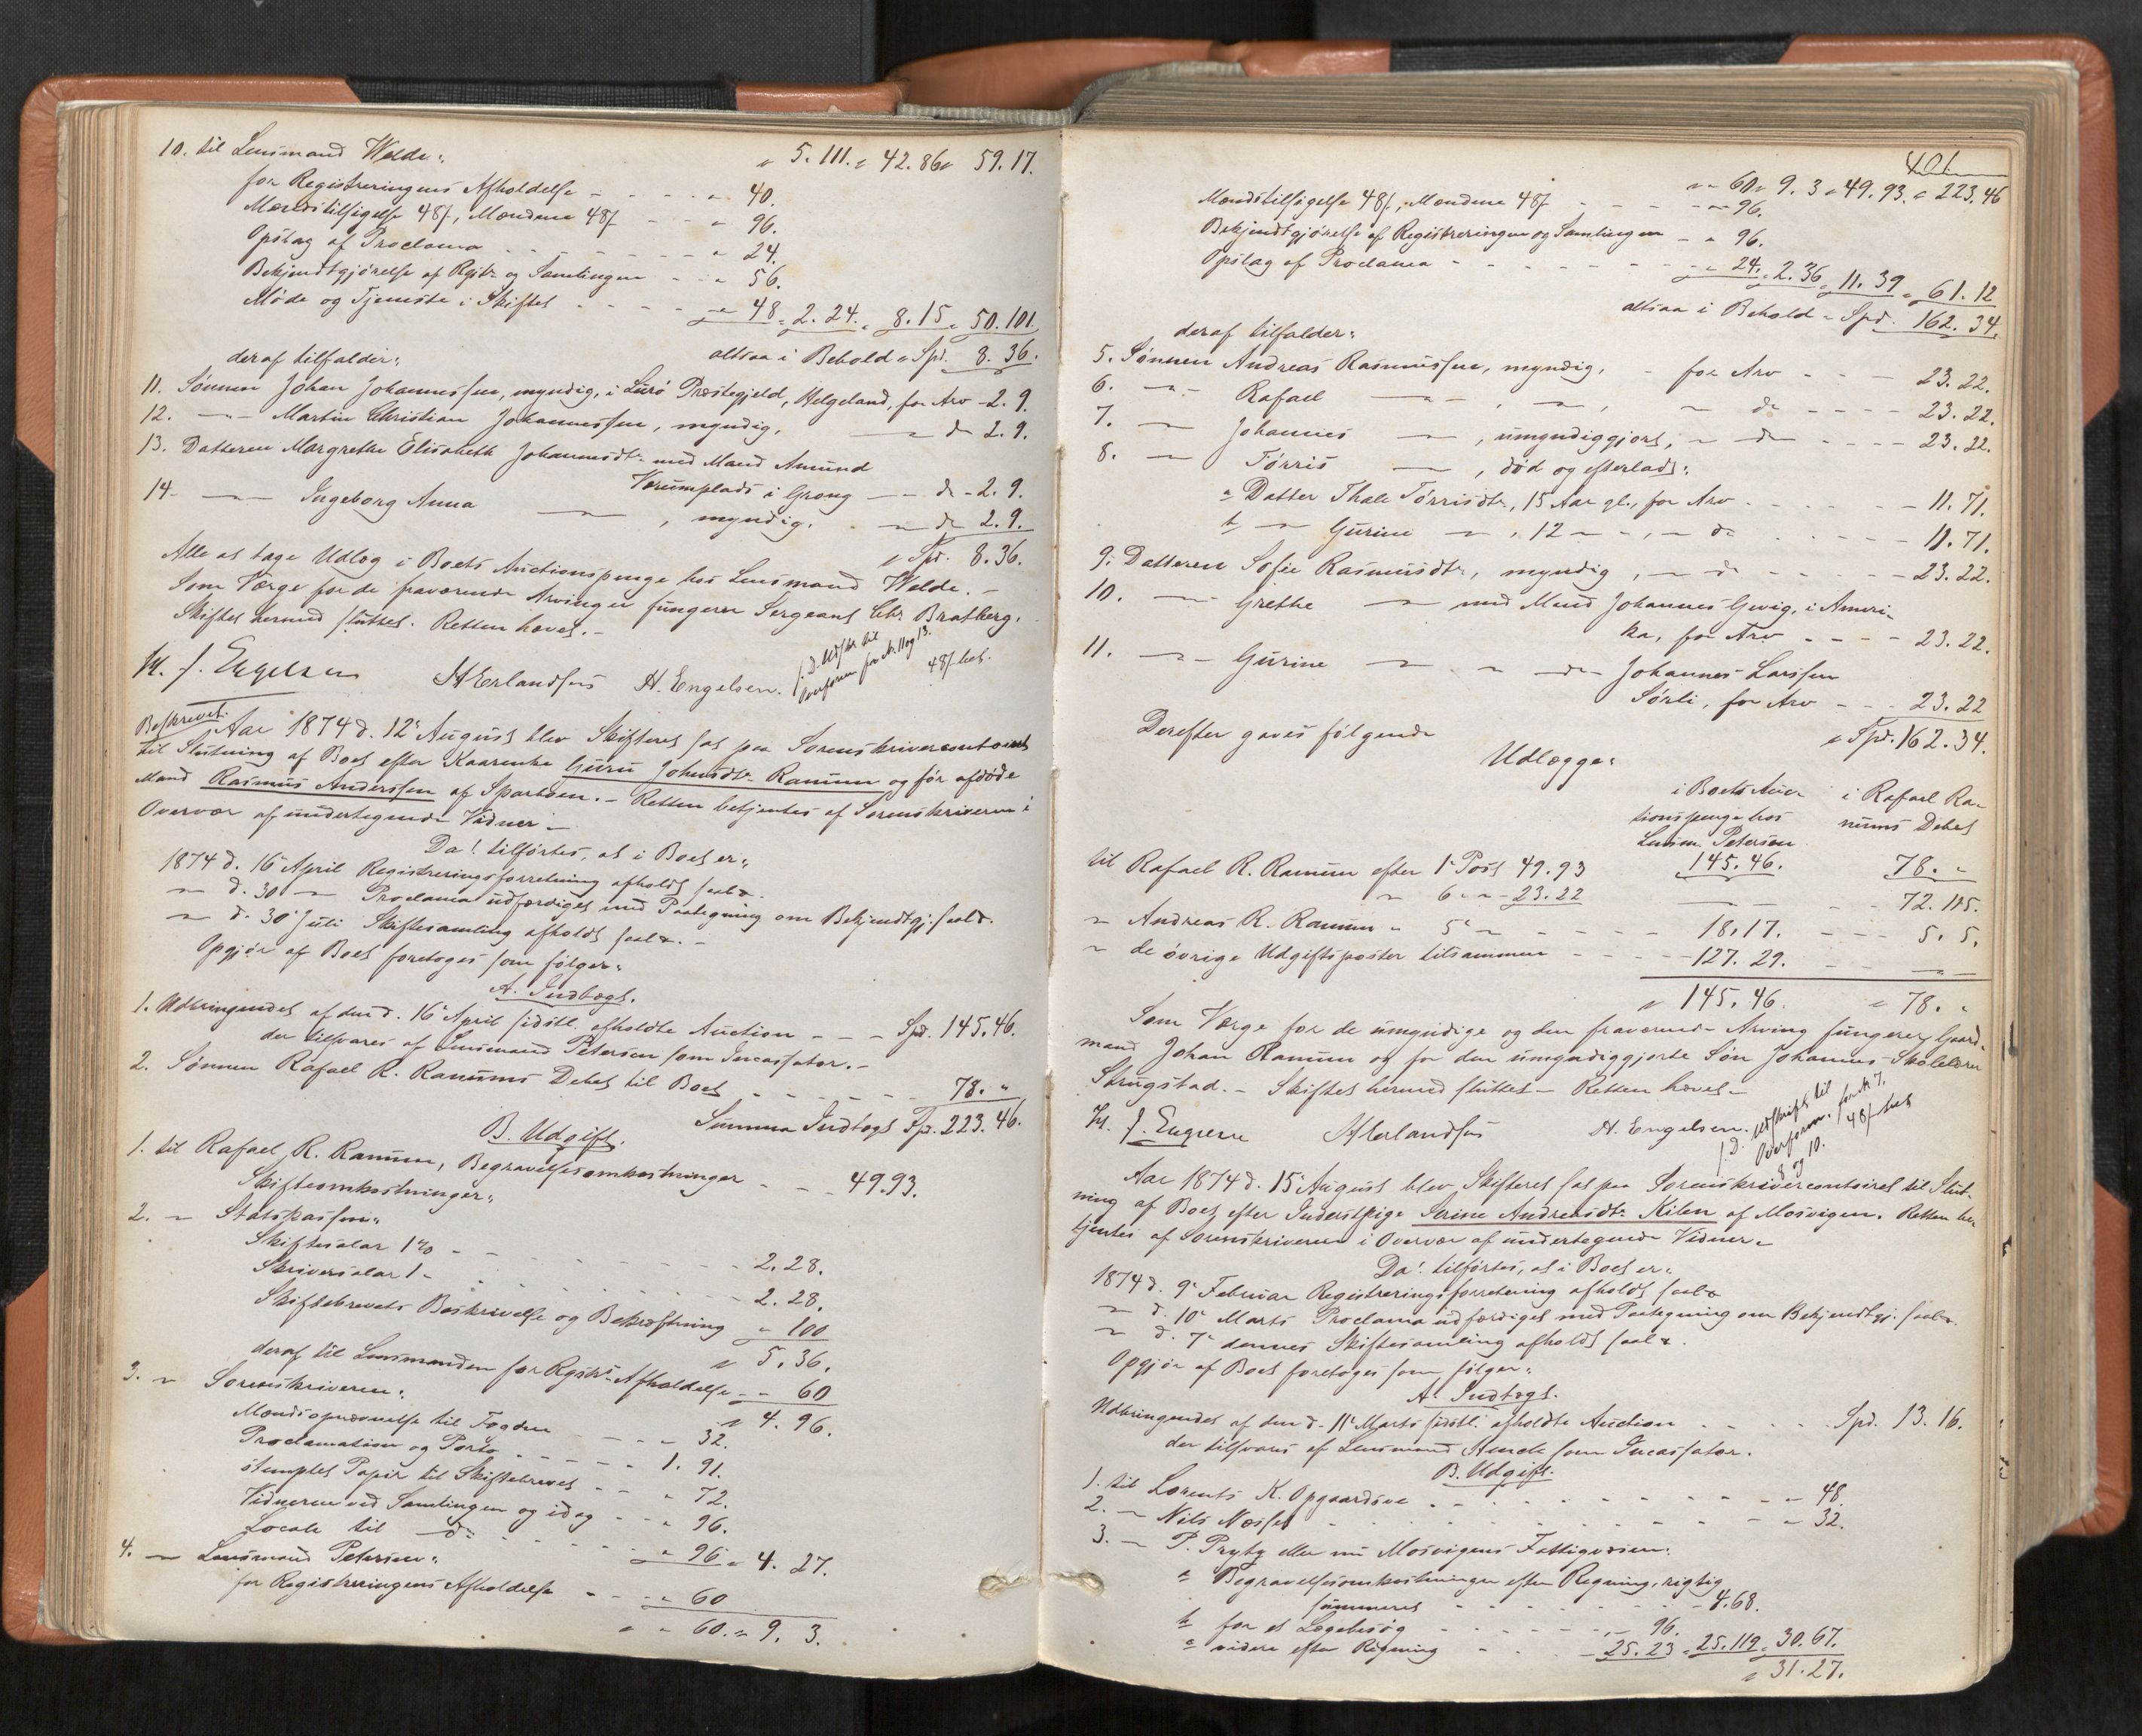 10. til Lensmand Welde: " 5. 111. " 42. 86 " 59. 17.
for Registreringens Afholdelse - - - " 40.
Mændstilsigelse 48ſ, Mændene 48ſ - - " 96.
Opslag af Proclama - - - - " 24.
Bekjendtgjørelse af Regstr. og Samlingen - - " 56.
Møde og Tjeneste i Skiftet - - - - " 48 " 2. 24. " 8. 15 " 50. 101
altsaa i Behold " Spd. 8. 36.
deraf tilfalder:
11. Sønnen Johan Johannessen, myndig, i Lurø Præstegjeld, Helgeland, for Arv - 2. 9.
12. — " — Martin Christian Johannessen, myndig, " do 2. 9.
13. Datteren Margrethe Elisabeth Johannesdtr. med Mand Amund
Værumplads i Grong — - do - 2. 9.
14 — " — Ingeborg Anna — " — , myndig. " do 2. 9.
" Spd. 8. 36.
Alle at tage Udlæg i Boets Auctionspenge hos Lensmand Welde. -
Som Værge for de fraværende Arvinger fungerer Sergeant Chr. Bratberg.
Skiftet hermed sluttet. Retten hævet. -
H. J. Engelsen A Erlandsen H. Engelsen.
s. D. Udskr. til
Overform. for No. 11 og 13.
48ſ bet.
Beskrevet.
Aar 1874 d. 12te August blev Skifteret sat paa Sorenskrivercontoiret
til Slutning af Boet efter Kaarenke Guru Johnsdtr. Ranum og før afdøde
Mand Rasmus Anderssen af Sparboen. - Retten betjentes af Sorenskriveren i
Overvær af undertegnede Vidner -
Da! tilførtes, at i Boet er:
1874 d. 16 April Registreringsforretning afholdt saal.
" d. 30 " Proclama udfærdiget med Paategning om Bekjendtgj. saal.
" d. 30te Juli Skiftesamling afholdt saal. -
Opgjør af Boet foretages som følger:
A. Indtægt.
1. Udbringendet af den d. 16te April sidstl. afholdte Auction - - - Spd. 145. 46.
der tilsvares af Lensmand Petersen som Incassator. -
2. Sønnen Rafael R. Ranums Debet til Boet - - - - - 78. "
Summa Indtægt Sp. 223. 46.
B. Udgift.
1. til Rafael R. Ranum, Begravelsesomkostninger - - - 49. 93.
Skifteomkostninger:
2. " Statskassen:
Skiftesalar 1% - - - - - - 2. 28.
Skriversalar 1 - - - - - - 2. 28.
Skiftebrevets Beskrivelse og Bekræftning " 100
" 5. 36.
deraf til Lensmanden for Regstrs. Afholdelse - - 60
" 4. 96.
3. " Sorenskriveren:
Mændsopnævnelse til Fogden - - - - 32.
Proclamation og Porto - - - - - 1. 91.
stemplet Papir til Skiftebrevet - - - " 72.
Vidnerne ved Samlingen og idag - - - " 96.
Locale til — do - - - - - - " 96 " 4. 27.
4. — Lensmand Petersen:
for Registreringens Afholdelse - - - - " 60
" " 60. " 9. 3.
401
" " 60 " 9. 3 " 49. 93. " 223. 46
Mændstilsigelse 48ſ, Mændene 48ſ - - - - " 96.
Bekjendtgjørelse af Registreringen og Samlingen - " 96.
Opslag af Proclama - - - - - - " 24. " 2. 36 " 11. 39 " 61. 12
altsaa i Behold " Spd. 162. 34.
deraf tilfalder:
5. Sønnen Andreas Rasmussen, myndig, - for Arv - - - 23. 22.
6. — " — Rafael — " — , — " — , " do - - - - 23. 22.
7. — " — Johannes — " — , umyndiggjort, " do - - - - 23. 22.
8. — " — Tørris — " — , død og efterladt:
a Datter Thale Tørrisdtr., 15 Aar gl., for Arv - - - - - - 11. 71.
b — " — Gurine — " — , 12 — " — , " do - - - - - - 11. 71.
9. Datteren Sofie Rasmusdtr., myndig, — " do - - - - - 23. 22.
10. — " — Grethe — " — med Mand Johannes Gevig, i Ameri-
ka, for Arv - - - - 23. 22.
11. — " — Gurine — " — " — do — Johannes Larssen
Sørli, for Arv - - - 23. 22
" Spd. 162. 34.
Derefter gaves følgende
Udlægge:
i Boets Auc- i Rafael Ra-
tionspenge hos nums Debet
Lensm. Petersen
145. 46. 78. "
til Rafael R. Ranum efter 1ste Post 49. 93
" 6 " - 23. 22 — - - - 72. 115.
" Andreas R. Ranum " 5te " - - - - 18. 17. - - - 5. 5.
" de øvrige Udgiftsposter tilsammen - - - - 127. 29. - - — " —
" 145. 46. " 78. "
Som Værge for de umyndige og den fraværende Arving fungerer Gaard-
mand Johan Ranum og for den umyndiggjorte Søn Johannes Skolelærer
Strugstad. - Skiftet hermed sluttet - Retten hævet -
H. J. Engelsen A Erlandsen H. Engelsen.
s. D. Udskrift til
Overform. for No. 7,
8 og 10. 48ſ bet.
Aar 1874 d. 15te August blev Skifteret sat paa Sorenskrivercontoiret til Slut-
ning af Boet efter Inderstpige Serine Andreasdtr. Kilen af Mosvigen. Retten be-
tjentes af Sorenskriveren i Overvær af undertegnede Vidner -
Da! tilførtes, at i Boet er:
1874 d. 9de Februar Registreringsforretning afholdt saal.
" d. 10de Marts Proclama udfærdiget med Paategning om Bekjendtgj. saal.
" d. 7de dennes Skiftesamling afholdt saal.
Opgjør af Boet foretages som følger:
A. Indtægt.
Udbringendet af den d. 11te Marts sidstl. afholdte Auction - - - - - Spd. 13. 16.
der tilsvares af Lensmand Aunde som Incassator.
B. Udgift.
1. til Lorents K. Opgaardsve - - - - - - - - - - " 48.
2. — Nils Næsset - - - - - - - - - - " 32.
3. — P. Prytz eller nu Mosvigens Fattigvæsen:
a Begravelsesomkostninger efter Regning, rigtig
summeret - - - - - - - 4. 68.
b for et Lægebesøg - - - - - " 96.
c videre efter Regning - - - 25. 23 " 25. 119 " 30. 67.
" 31. 27.